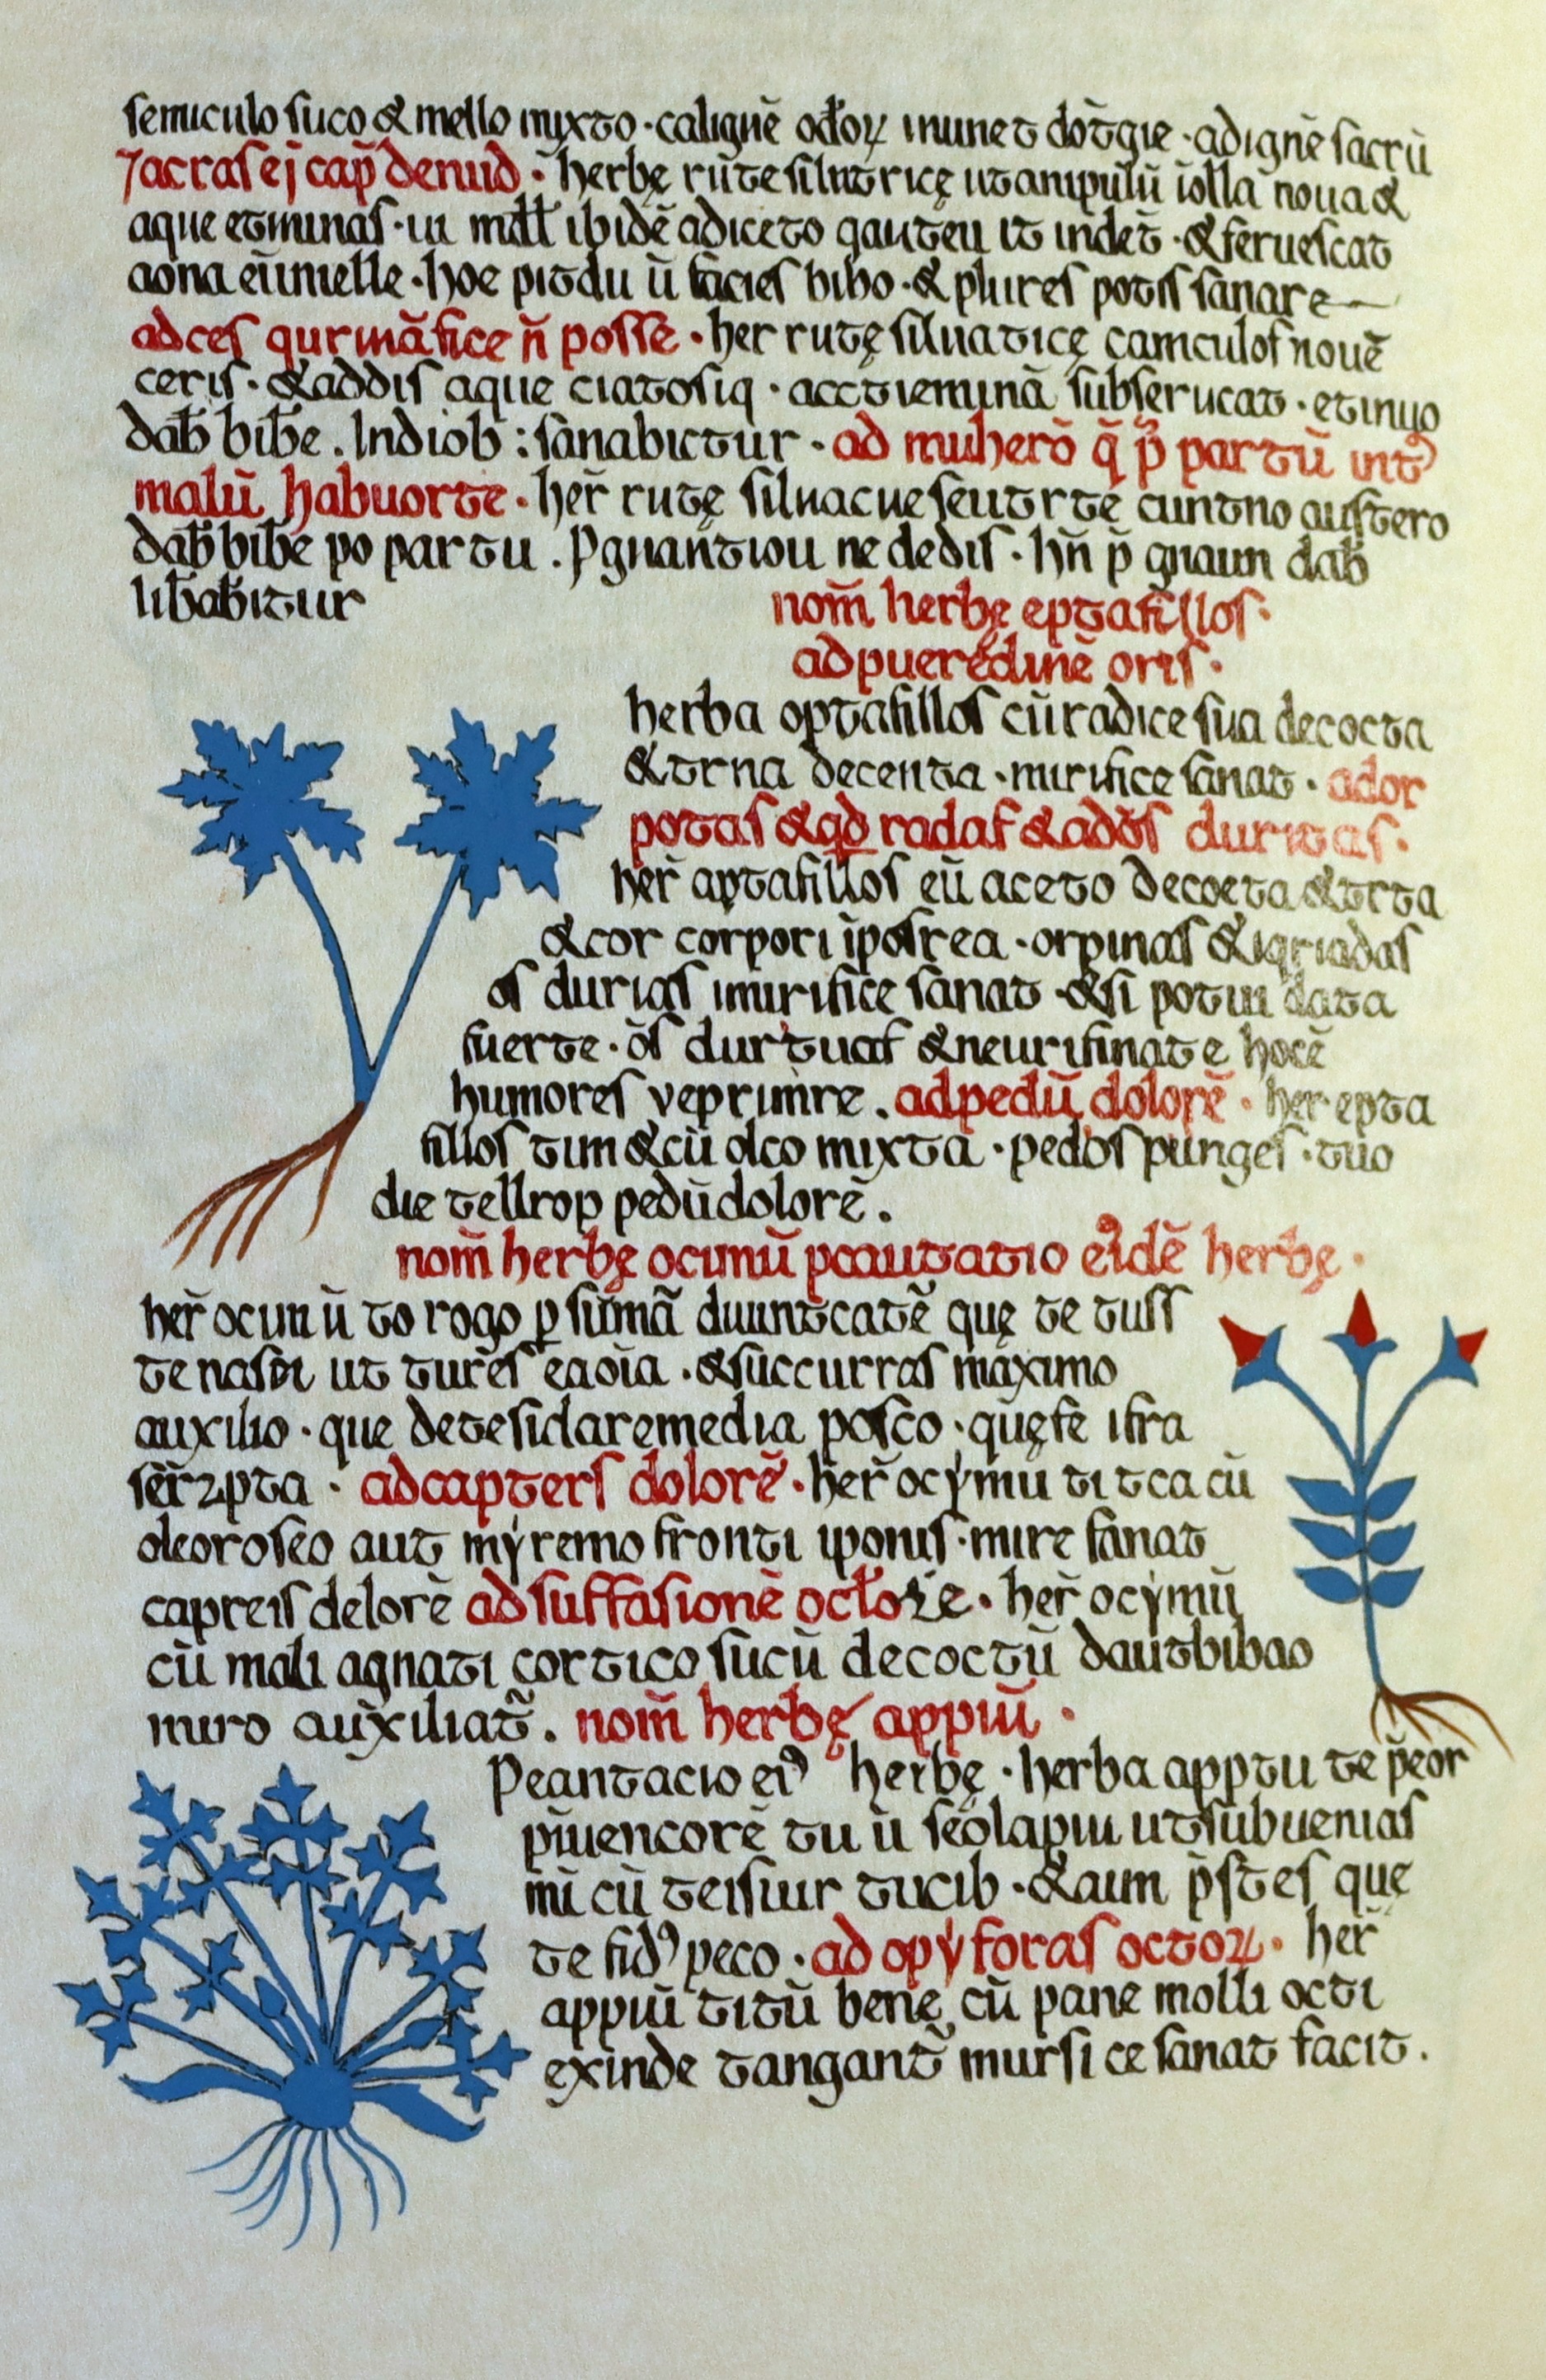 semiculo suco & mello mixto · caliguē oc̄loꝝ munet dōtgie · adignē sacrū
⁊acras ej cap̄ denud · herbę rūte silutricę utanipulū iolla noua &
aque etminas · ui mell ibidē adiceto qauteu it indet̄ · & feruescat
aona eūmelle · hoe pitdu ū facies bibo · & plures potis sanare
adces qurmāfice n̄ possē · her rutę siluaticę camculos nouē
ceris · & addis aque ciatosiq · acctieminā subserucat · etinuo
dab̄ bib̄e . Indiob : sanabictur · ad muherō q̄ p̄ partū int
malū habuorte · her̄ rutę siluacue seutrte cuntno austero
dab̄ bib̄e po partu . Pgnantiou ne dedis · hn̄ p̄ gnaum dab̄
lib̄ab̄itur
nom̄ herbę eptafillos ·
adpueredinē oris ·
herba optafillos cūradice sua decocta
& trna decenta · mirifice sanat · ador
potas & qd radaf & adōs duritas ·
her̄ aptafillos eū aceto decoeta & trta
& cor corpori īposrea · orpinas & iqriadas
os durias imirifice sanat · & si potui data
fuerte · ōs durtuaf & neurifinate hocē
humores veprimre . adpedū dolorē · her epta
fillos tim & cū olco mixta · pedos punges · tuo
die tellrop pedūdolorē .
nom̄ herbę ocimū pcautatio eidē herbę ·
her̄ ocun ū to rogo ꝑ sūmā duuntcatē quę te tuss
te nasci ut tures eaoīa · & succurras maximo
auxilio · que detesidaremedia posco · quęfe ifra
ser̄ꝛpta · adcapters dolorē · her̄ ocẏmu ti tca cū
oleoroseo aut mẏremo fronti iponis · mire sanat
capreis delorē ad suffasionē octoꝛe · her̄ ocẏmū
cū mali agnati cortico sucū decoctū dautbibao
miro auxiliat̄ . nom̄ herbę appiū ·
Peantacio ei⁹ herbę · herba apptu te p̄eor
piuencorē tu ū seolapiu utsubuenias
mi cū teisuur tucib · & aum p̄stes quę
te fid⁹ peco · ad opẏforas octoꝝ · her̄
appiū titū bene cū pane molli octi
exinde tangant̄ mursi ce sanat facit .